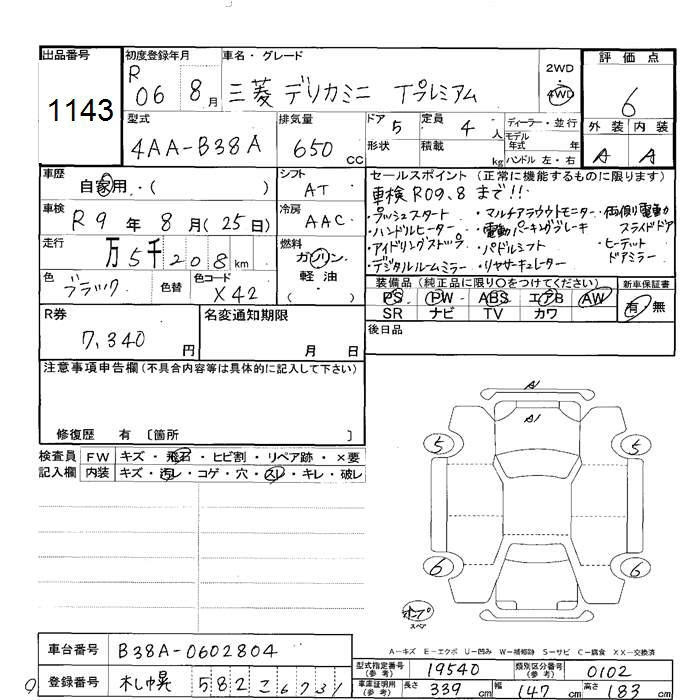 出品番号
1143
初度登録年月
R 06 8月
車名・グレード
三菱 デリカミニ Tプレミアム
2WD
・
4WD
評価点
6
外装 内装
A A
型式
4AA-B38A
排気量
650 CC
ドア 5
形状
定員 4 人
積載 kg
ディーラー・並行
モデル年式 年
ハンドル 左・右
車歴
自家用・( )
車検
R 9年 8月(25日)
走行
万5千208km
色
ブラック
色替
色コード
X42
シフト
AT
冷房
AAC
燃料
ガソリン
軽油
( ・ )
セールスポイント (正常に機能するものに限ります)
車検R09.8まで!!
・プッシュスタート ・マルチアラウンドモニター ・両側電動スライドドア
・ハンドルヒーター ・電動パーキングブレーキ ・ヒーテッドドアミラー
・アイドリングストップ ・パドルシフト
・デジタルルームミラー ・リヤサーキュレーター
装備品(純正品に限り○をつけてください)
PS PW ABS エアB AW
SR ナビ TV カワ
新車保証書
有・無
後日品
R券
7,340 円
名変通知期限
月 日
注意事項申告欄(不具合内容等は具体的に記入して下さい)
修復歴 有 〔箇所 〕
検査員記入欄
FW キズ・飛石・ヒビ割・リペア跡・×要
内装 キズ・汚レ・コゲ・穴・スレ・キレ・破レ
A
A1
5 5
6 6
スペア
A-キズ E-エクボ U-凹み W-補修跡 S-サビ C-腐食 XX-交換済
車台番号 B38A-0602804
登録番号 札幌 582こ6731
型式指定番号(参考) 19540
類別区分番号(参考) 0102
車庫証明用(参考) 長さ 339cm 幅 147cm 高さ 183cm